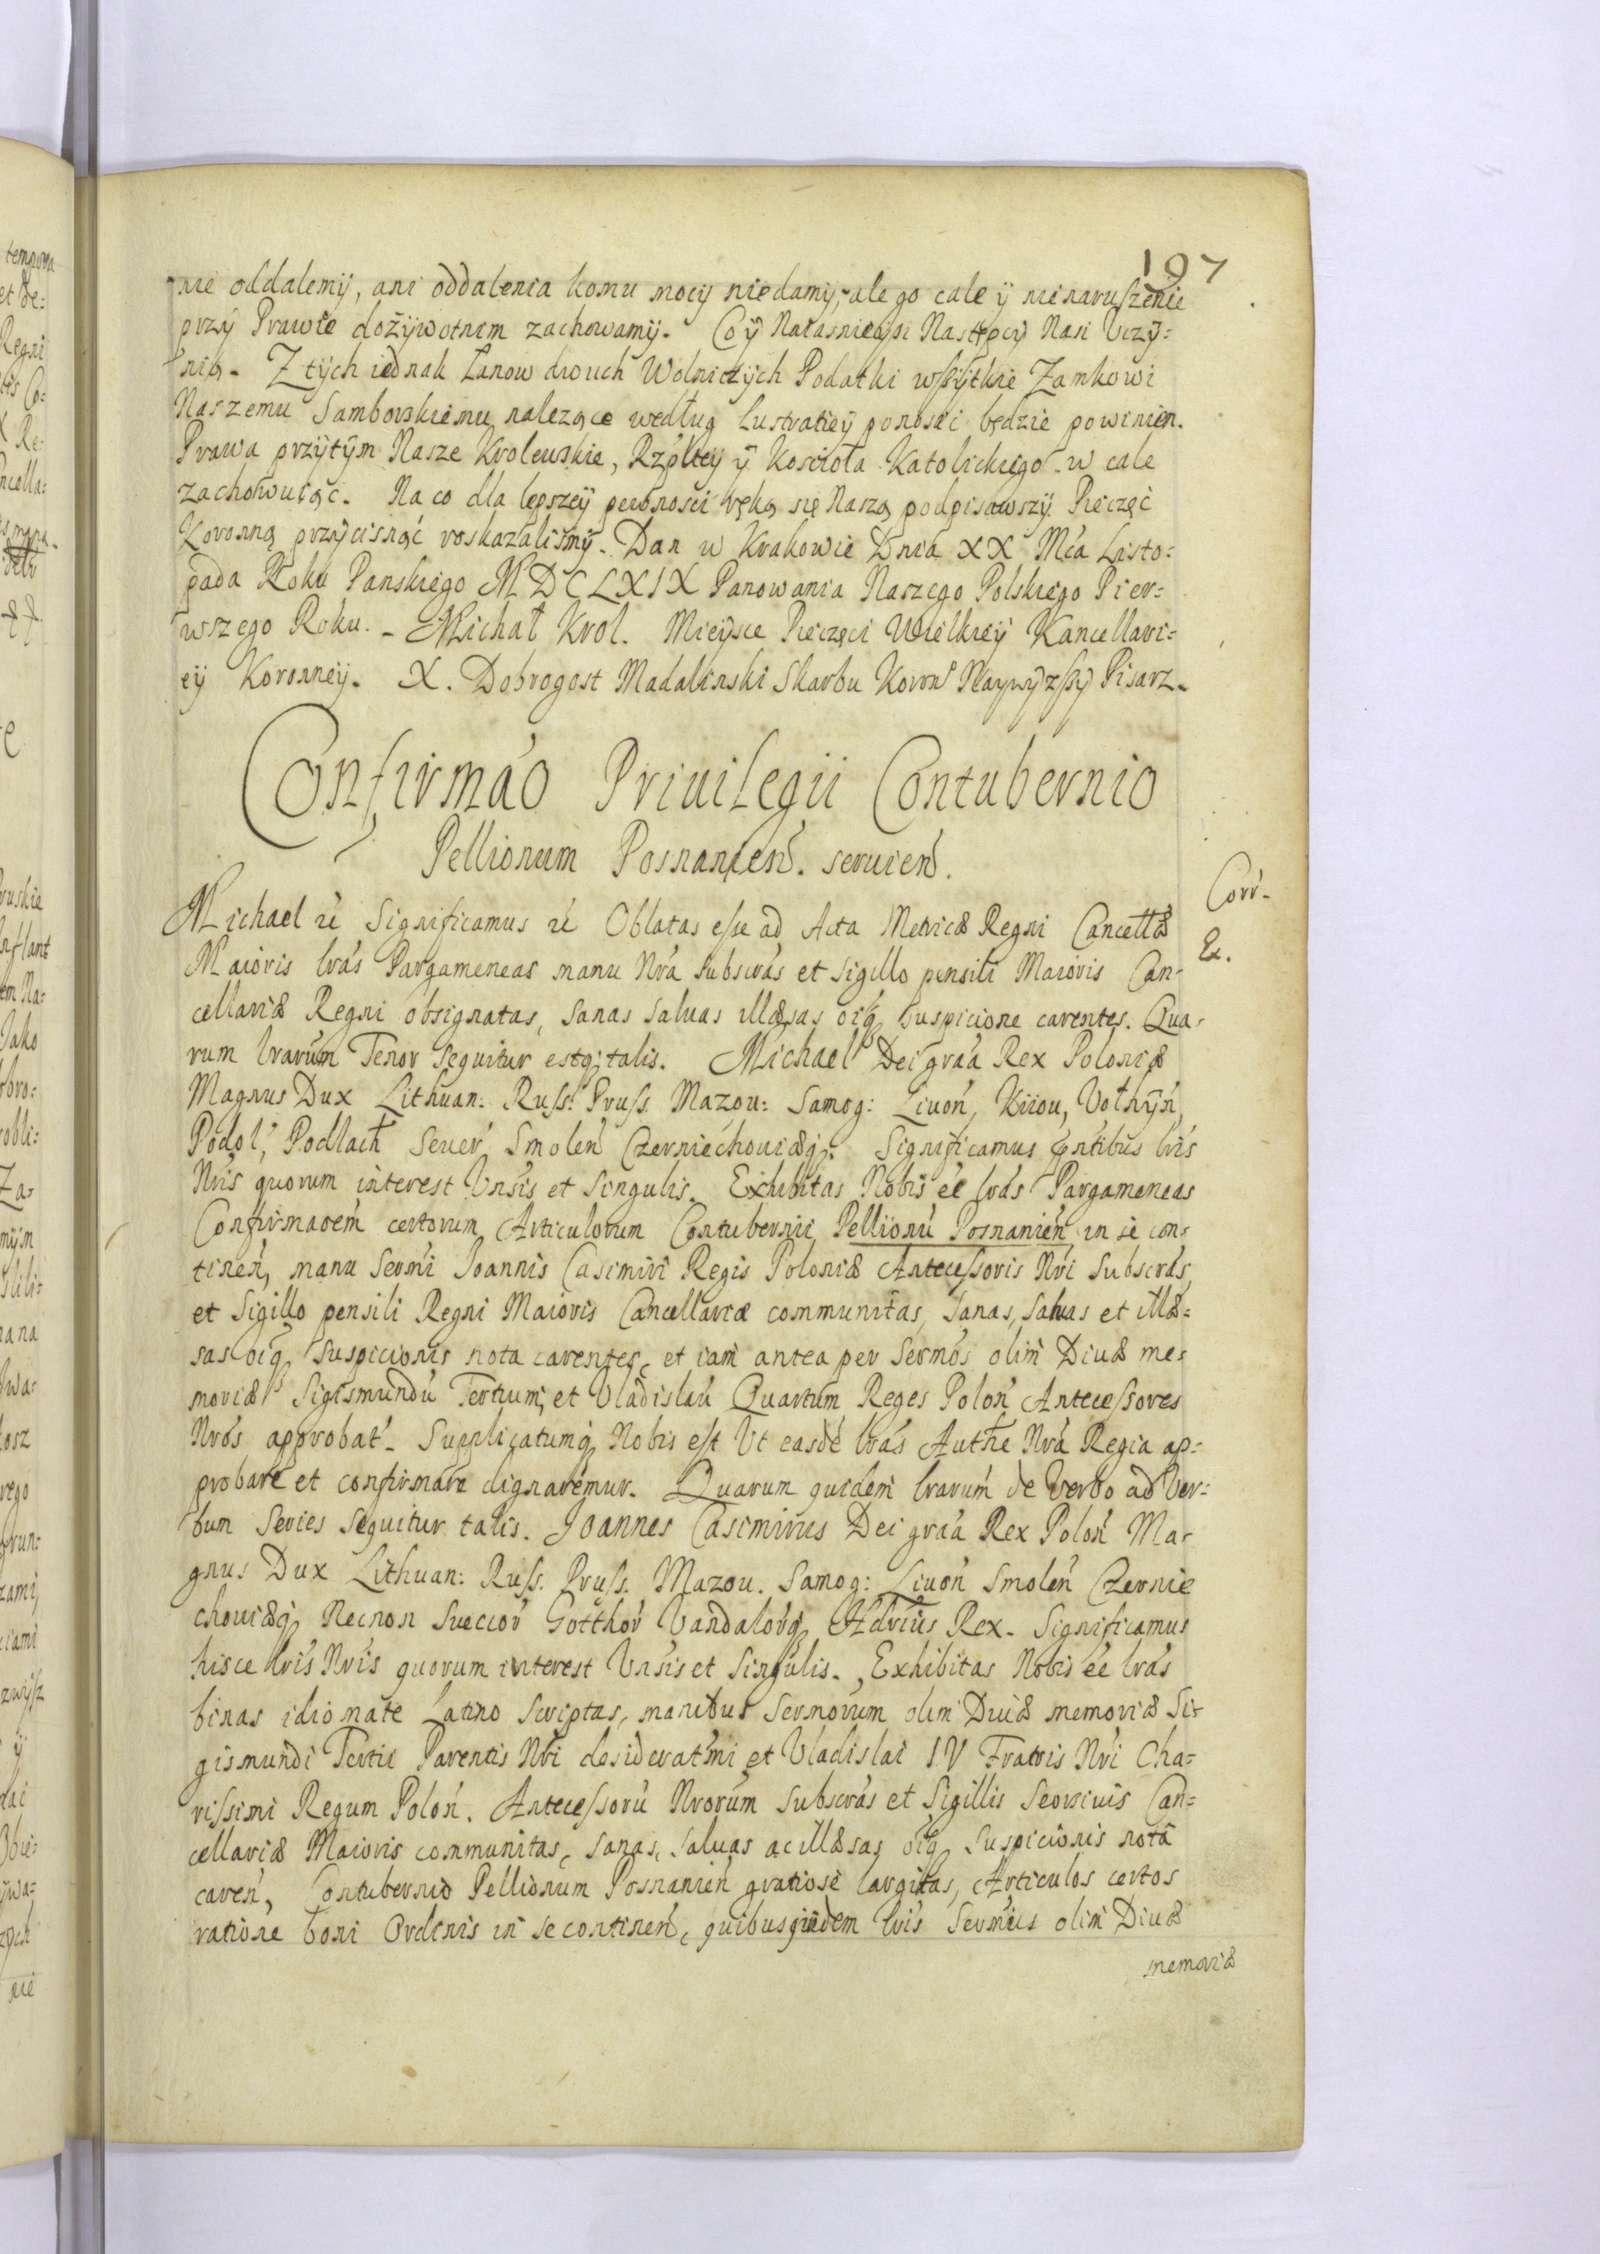 197
nie oddalemy, ani oddalenia komu mocy niedamy, ale go cale ÿ nienaruszenie
przÿ Prawie dożÿwotnim zachowamÿ. Co ÿ Naiasnieÿsi Następcÿ Nasi Uczÿ:
nią. Z tÿch iednak Łanow dwuch Wolniczÿch Podatki wszÿtkie Zamkowi
Naszemu Samborskiemu nalezące według Lustratieÿ ponosic będzie powinien.
Prawa przÿtÿm Nasze Krolewskie, Rzpltey ÿ Koscioła Katolickiego w cale
zachowuiąc. Na co dla lepszeÿ pewnosci ręką się Naszą podpisawszÿ Pieczęć
Koronną przÿcisnąć roskazalismÿ. Dan w Krakowie Dnia XX Mca Listo:
pada Roku Panskiego MDCLXIX Panowania Naszego Polskiego Pier:
wszego Roku. Michał Krol. Mieÿsce Pieczęci Wielkieÿ Kancellari:
eÿ Koronneÿ. X. Dobrogost Madalinski Skarbu Koron Naywÿzszÿ Pisarz.
Confirmáo Priuilegii Contubernio
Pellionum Posnanien. seruien.
Corr.
Ex.
Michael rē Significamus rē Oblatas esse ad Acta Metricæ Regni Cancellæ
Maioris lrás Pargameneas manu Nrá subscrás et sigillo pensili Maioris Can-
cellariæ Regni obsignatas, sanas saluas illæsas oiq suspicione carentes. Qua-
rum lrarum Tenor sequitur estq; talis. Michael Dei gráa Rex Poloniæ
Magnus Dux Lithuan: Russ: Pruss. Mazou: Samog: Liuoń, Kiiou, Vołhÿń,
Podol, Podlach Seuer Smoleń Czerniechouiæq;. Significamus pntibus lris
Nris quorum interest Vnsis et singulis. Exhibitas Nobis eé lrás Pargameneas
Confirmaoem certorum Articulorum Contubernii Pellionú Posnanień in se con-
tineń, manu Sermi Joannis Casimiri Regis Poloniæ Antecessoris Nri Subscrás,
et Sigillo pensili Regni Maioris Cancellariæ communitas, sanas, saluas et illæ-
sas oiq suspicionis nota carentes, et iam antea per Sermos olim Diuæ me-
moriæ Sigismundú Tertium, et Vladislaú Quartum Reges Poloń Antecessores
Nrós approbat. Supplicatumq; Nobis est Vt easdé lrás Authe Nrá Regia ap-
probare et confirmare dignarémur. Quarum quidem lrarum de Verbo ad Ver-
bum Series sequitur talis. Joannes Casimirus Dei gráa Rex Poloń Ma-
gnus Dux Lithuan: Russ. Pruss. Mazou. Samog: Liuoń Smoleń Czernie
chouiæq; Necnon Suecior Gotthor Vandalorq; Hdrius Rex. Significamus
hisce lris Nris quorum interest Vnsis et singulis. Exhibitas Nobis eé lrás
binas idiomate Latino scriptas, manibus Sermorum olim Diuæ memoriæ Si-
gismundi Tertii Parentis Nri desideratmi et Vladislai IV Fratris Nri Cha-
rissimi Regum Poloń. Antecessorú Nrorum subscrás et Sigillis Seorsiuis Can-
cellariæ Maioris communitas, sanas, saluas ac illæsas oiq suspicionis notá
careń, Contubernio Pellionum Posnanień gratiose largitas, Articulos certos
ratione boni Ordinis in se contineń, quibus quidem lris Sermus olim Diuæ
memoriæ